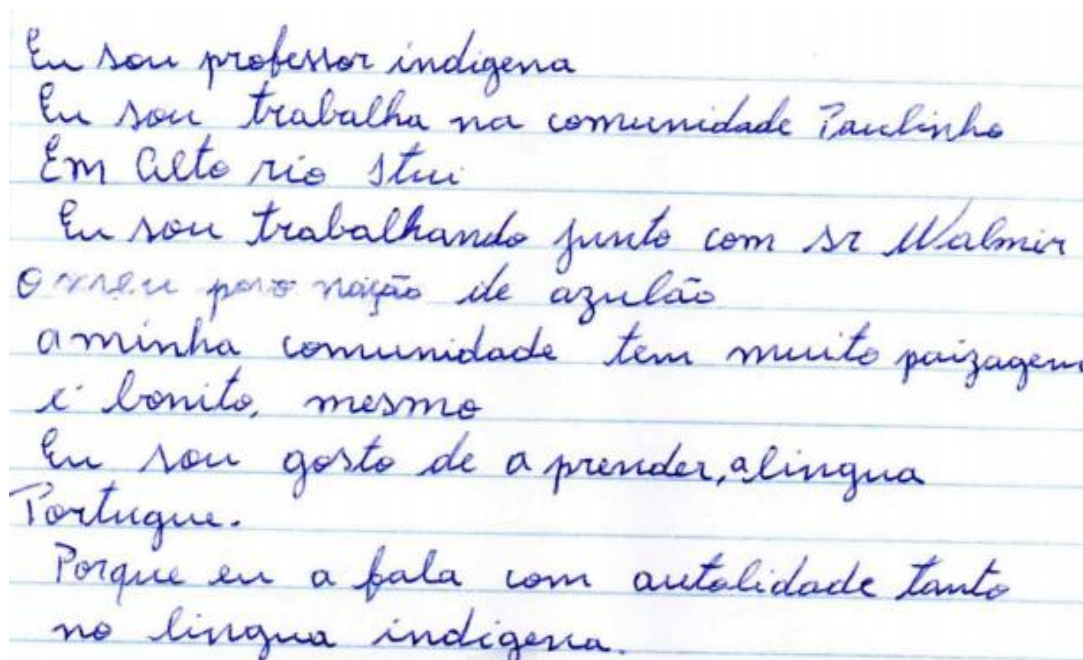 Eu sou professor indigena
Eu sou trabalha na comunidade Paulinho
Em Alto rio Itui
Eu sou trabalhando junto com sr Walmir
O meu povo nação de azulão
a minha comunidade tem muito paizagem
é bonito, mesmo
Eu sou gosto de a prender, a lingua
Portugue.
Porque eu a fala com autolidade tanto
no lingua indigena.